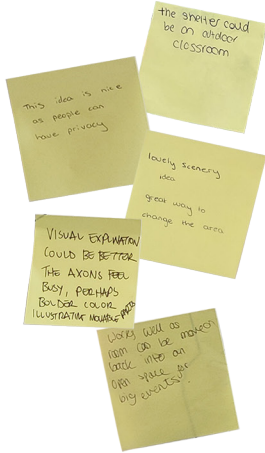 the shelter could
be an outdoor
classroom
This idea is nice
as people can
have privacy
lovely scenery
idea
great way to
change the area
VISUAL EXPLINATION
COULD BE BETTER
THE AXONS FEEL
BUSY, PERHAPS
BOLDER COLOR
ILLUSTRATING MOVABLE PARTS
Works well as
room can be made
back into an
open space for
big events!